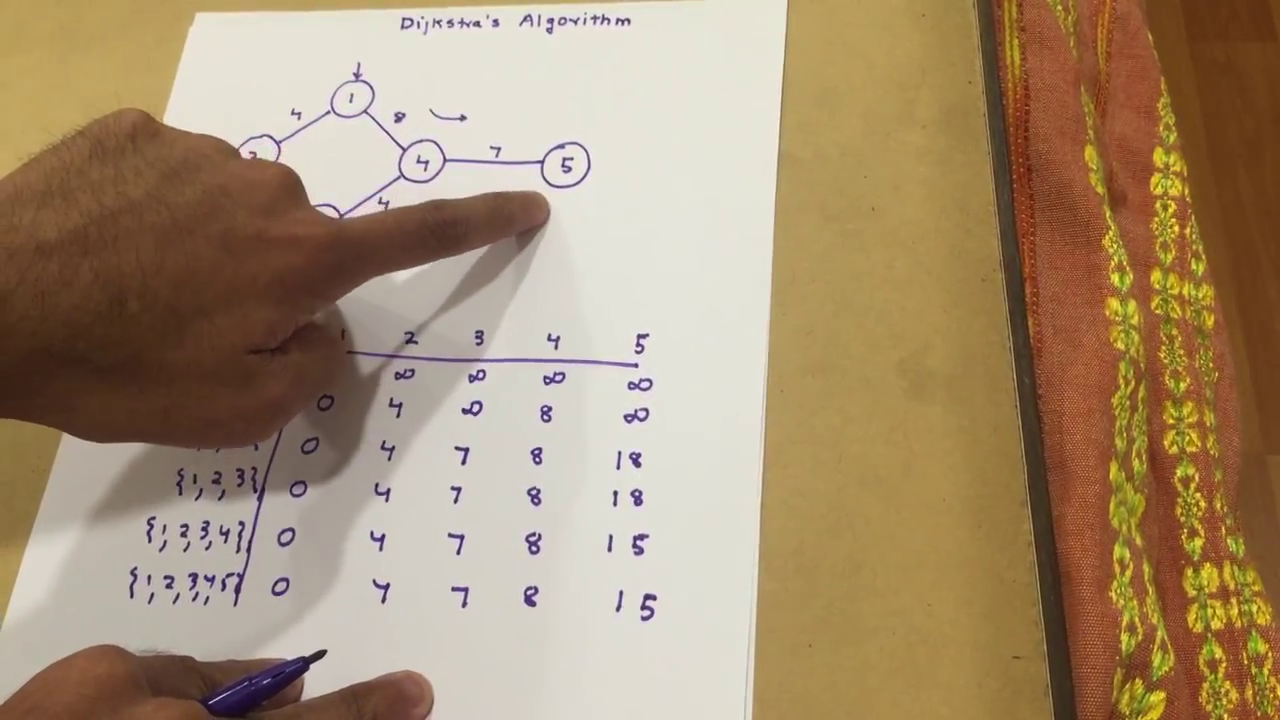 Dijkstra's Algorithm
1
4 8
4 7 5
4
1 2 3 4 5
∞ ∞ ∞ ∞
0 4 ∞ 8 ∞
0 4 7 8 18
{1,2,3} 0 4 7 8 18
{1,2,3,4} 0 4 7 8 15
{1,2,3,4,5} 0 4 7 8 15